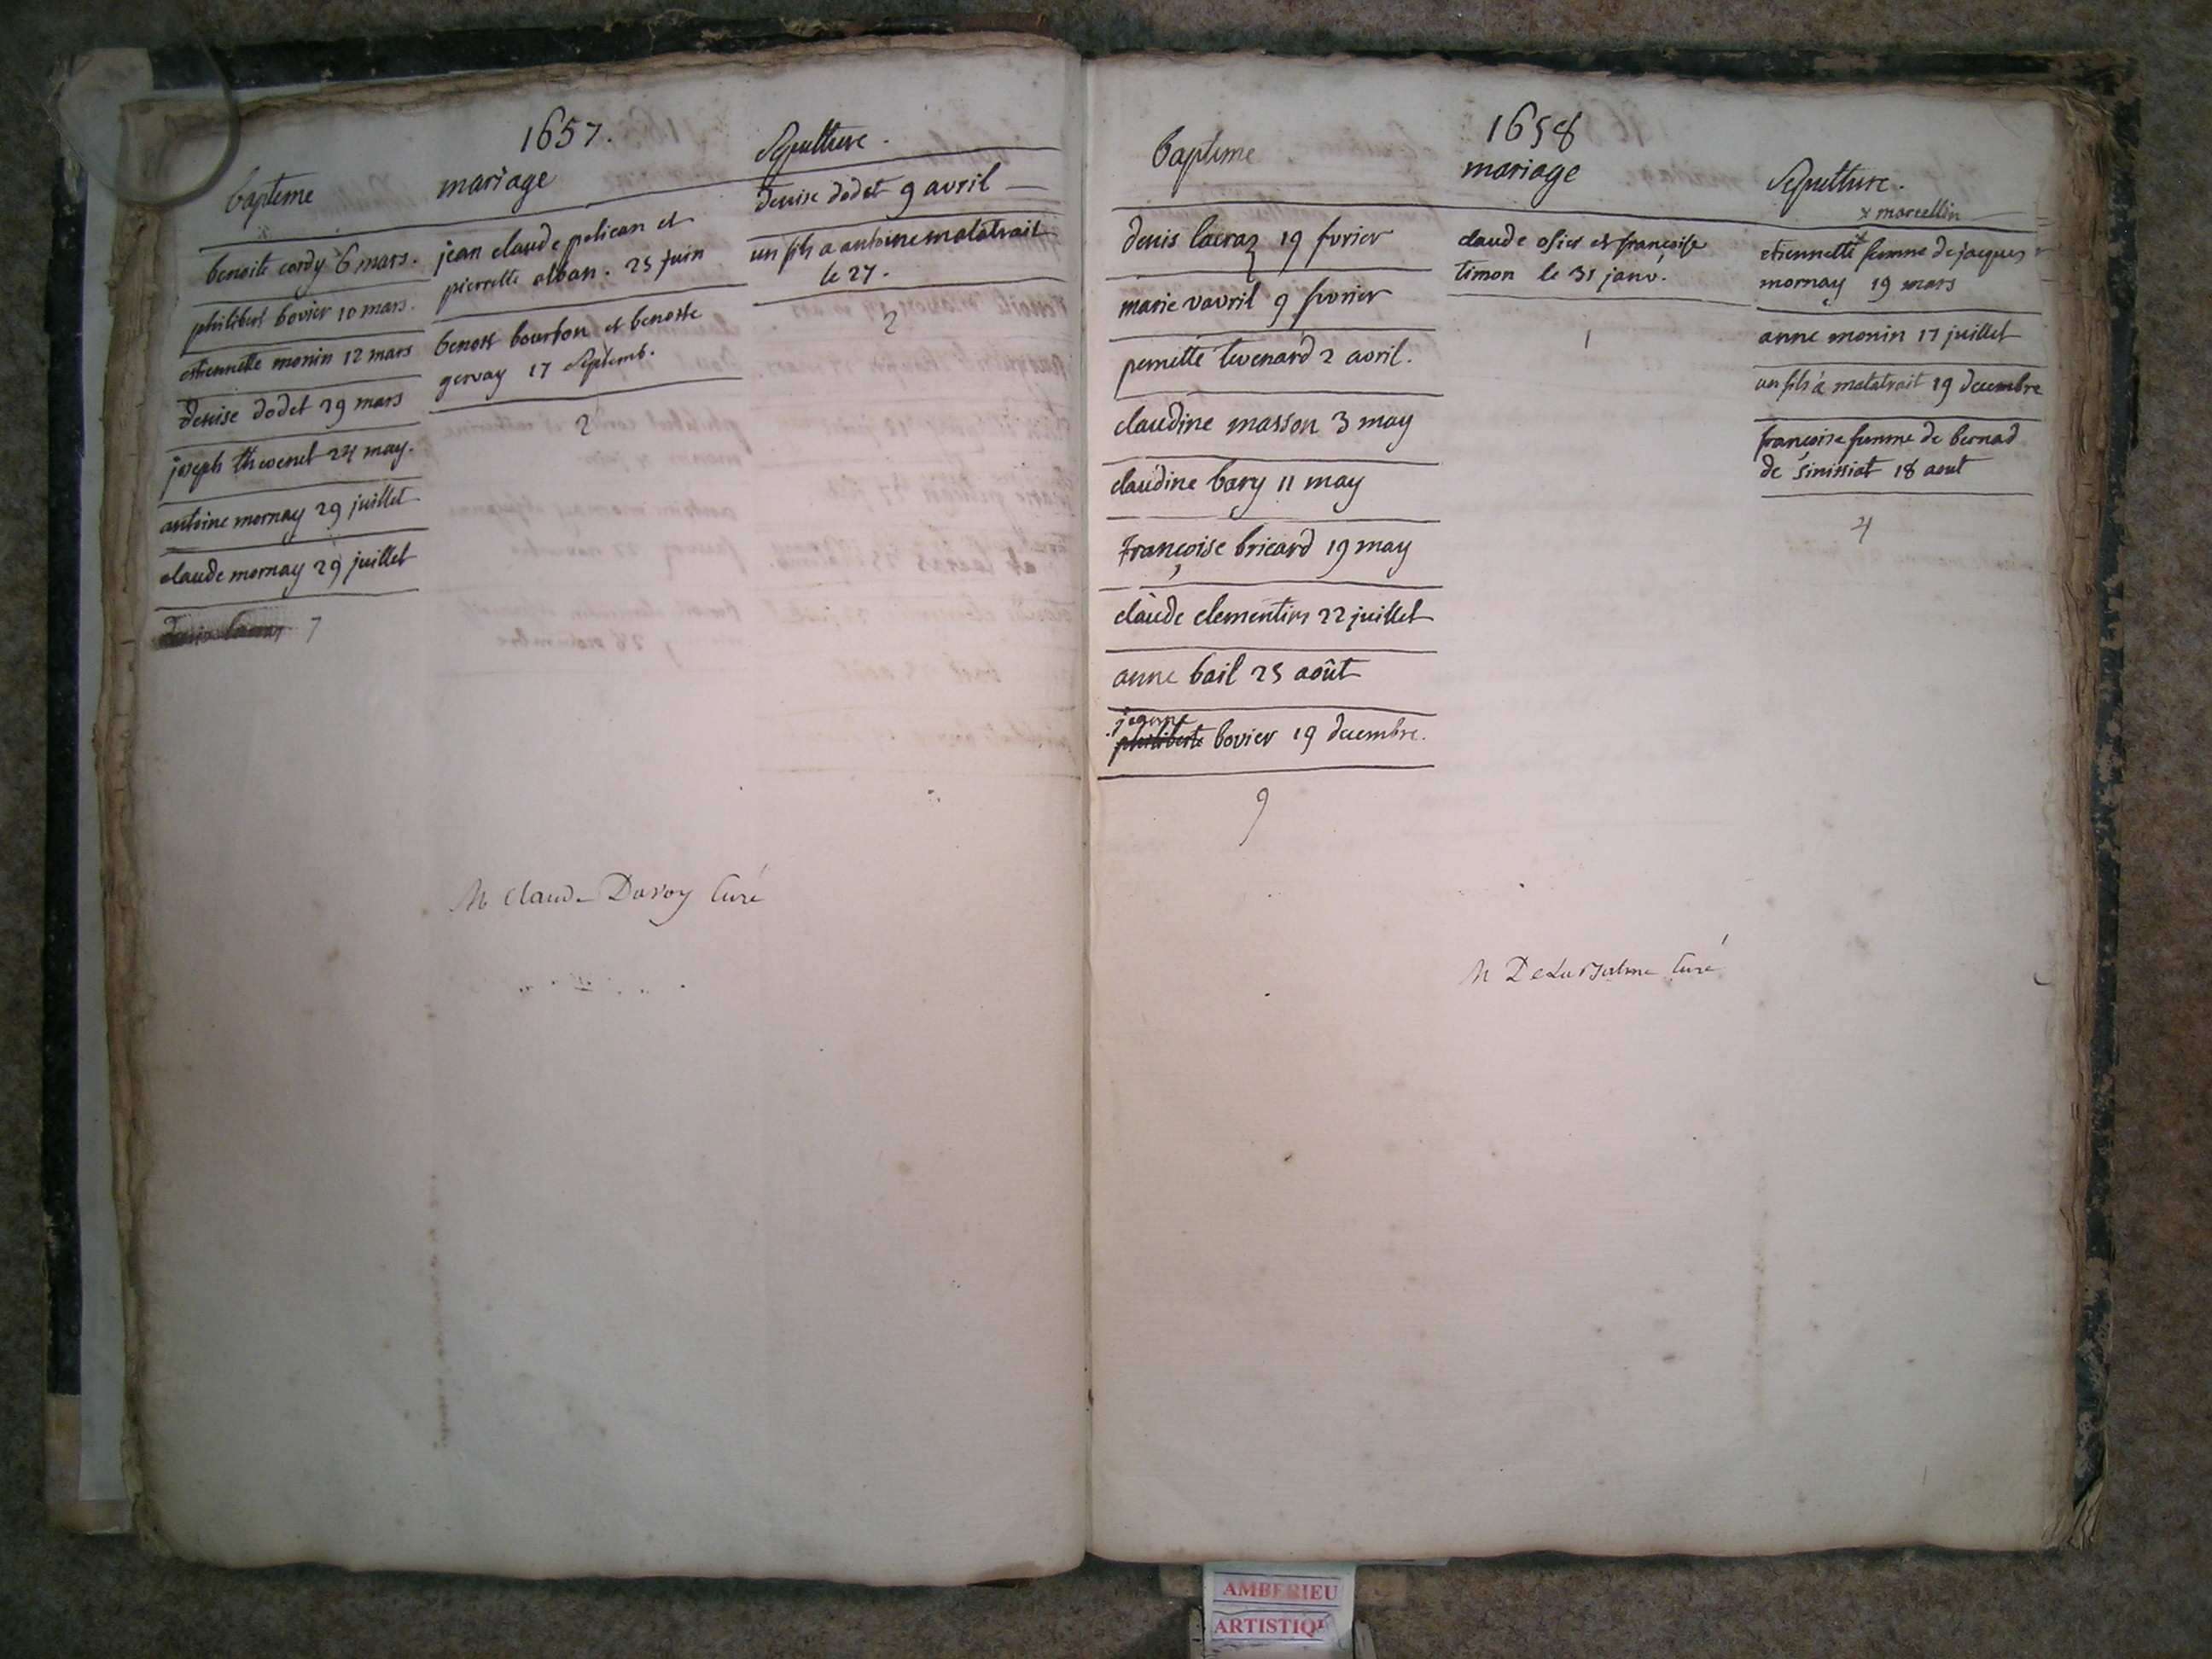 1657.
bapteme
mariage
Sepulture.
benoite cordy 6 mars.
philibert bovier 10 mars.
etiennette monin 12 mars
denise dodet 29 mars
joseph thevenet 24 may.
antoine mornay 29 juillet
claude mornay 29 juillet
7
jean claude pelican et
pierrette alban. 25 juin
benoit bourbon et benoite
gervay 17 Septemb.
2
denise dodet 9 avril
un fils a antoine malatrait
le 27.
2
M Claude Davoy Curé
1658
bapteme
mariage
Sepulture.
denis lacraz 19 fevrier
marie vavril 9 fevrier
pernette tevenard 2 avril.
claudine masson 3 may
claudine bary 11 may
françoise bricard 19 may
claude clementin 22 juillet
anne bail 25 août
jeanne
philiberte bovier 19 decembre.
9
claude osier et françoise
timon le 31 janv.
1
x marcellin
etiennette x femme de jacques
mornay 19 mars
anne monin 17 juillet
un fils à malatrait 19 decembre
françoise femme de bernad
de sinissiat 18 aout
4
M DeLaBalme Curé
AMBERIEU
ARTISTIQU